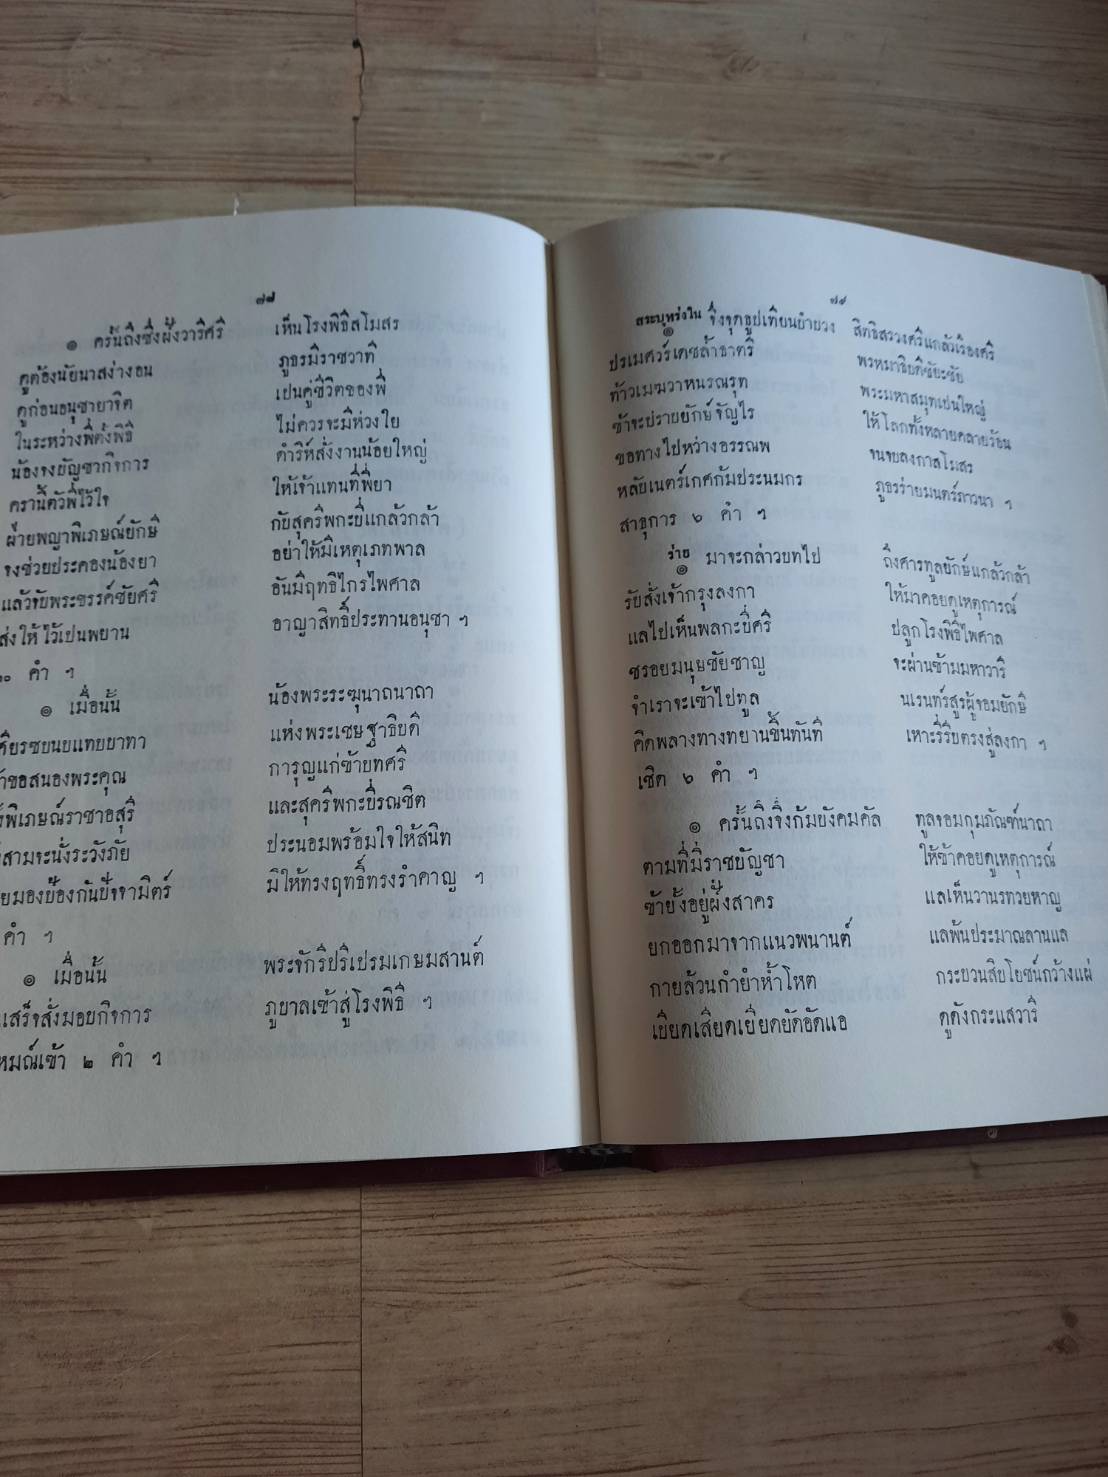 ๗๘
๏ ครั้นถึงซึ่งฝั่งวารีศรี เห็นโรงพิธีสโมสร
ดูต้องนัยนาสง่างอน ภูธรมีราชวาที
ดูก่อนอนุชายาจิต เป็นคู่ชีวิตของพี่
ในระหว่างพี่ตั้งพิธี ไม่ควรจะมีห่วงใย
น้องจงบัญชากิจการ ดำริห์สั่งงานน้อยใหญ่
ครานี้ตัวพี่ไว้ใจ ให้เจ้าแทนที่พี่ยา
ฝ่ายพญาพิเภษณ์ยักษี กับสุครีพกะบี่แกล้วกล้า
จงช่วยประคองน้องยา อย่าให้มีเหตุเภทพาล
แล้วจับพระขรรค์ชัยศรี อันมีฤทธิไกรไพศาล
ส่งให้ไว้เป็นพยาน อาญาสิทธิ์ประทานอนุชา ฯ
๑๐ คำ ฯ
๏ เมื่อนั้น น้องพระระฆุนาถนาถา
เศียรซบนบแทบบาทา แห่งพระเชษฐาธิบดี
ขอสนองพระคุณ การุญแก่ข้าบทศรี
พิเภษณ์ราชาอสุรี และสุครีพกะบี่รณชิต
สามจะนั่งระวังภัย ประนอมพร้อมใจให้สนิท
มองป้องกันปัจจามิตร์ มิให้ทรงฤทธิ์ทรงรำคาญ ฯ
คำ ฯ
๏ เมื่อนั้น พระจักรีปรีเปรมเกษมสานต์
เสร็จสั่งมอบกิจการ ภูบาลเข้าสู่โรงพิธี ฯ
พราหมณ์เข้า ๒ คำ ฯ
๗๙
สระบุหร่งใน
๏ จึ่งจุดธูปเทียนบำบวง สิทธิสรวงศรีแกล้วเรืองศรี
ปรเมศวร์เดชล้ำธาตรี พรหมาธิบดีชัยะชัย
ท้าวเมฆวาหนรณรุท พระมหาสมุทเป็นใหญ่
ข้าจะปราบยักษ์จัญไร ให้โลกทั้งหลายคลายร้อน
ขอทางไปหว่างอรรณพ จนจบลงกาสโมสร
หลับเนตร์เกศก้มประนมกร ภูธรร่ายมนตร์ภาวนา ฯ
สาธุการ ๖ คำ ฯ
ร่าย
๏ มาจะกล่าวบทไป ถึงศารทูลยักษ์แกล้วกล้า
รับสั่งเจ้ากรุงลงกา ให้มาคอยดูเหตุการณ์
แลไปเห็นพลกะบี่ศรี ปลูกโรงพิธีไพศาล
ชรอยมนุษชัยชาญ จะผ่านข้ามมหาวารี
จำเราจะเข้าไปทูล นเรนทร์สูรผู้จอมยักษี
คิดพลางทางทยานขึ้นทันที เหาะรี่รีบตรงสู่ลงกา ฯ
เชิด ๖ คำ ฯ
๏ ครั้นถึงจึ่งก้มบังคมคัล ทูลจอมกุมภัณฑ์นาถา
ตามที่มีราชบัญชา ให้ข้าคอยดูเหตุการณ์
ข้ายั้งอยู่ฝั่งสาคร แลเห็นวานรทวยหาญ
ยกออกมาจากแนวพนานต์ แลพ้นประมาณลานแล
กายล้วนกำยำห้ำโหด กระบวนสิบโยชน์กว้างแผ่
เยียดเสียดเยียดยัดอัดแอ ดูดังกระแสวารี